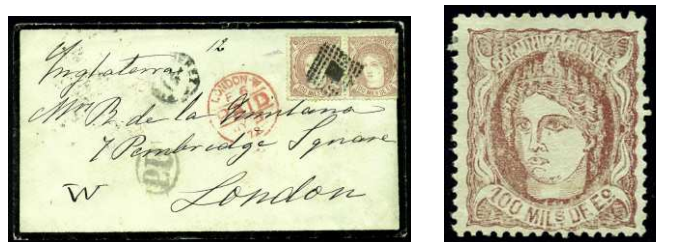 Inglaterra
12
LONDON-W
PAID
72
Mrs B. de la Quintana
7 Pembridge Square
PD
W
London
COMUNICACIONES
100 MILS DE Eo.